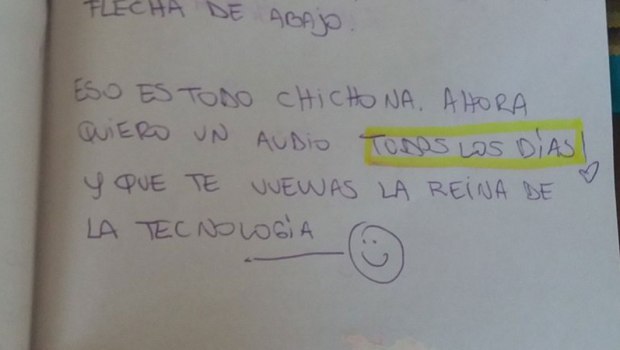 FLECHA DE ABAJO.
ESO ES TODO CHICHONA. AHORA
QUIERO UN AUDIO TODOS LOS DÍAS!
Y QUE TE VUELVAS LA REINA DE
LA TECNOLOGÍA